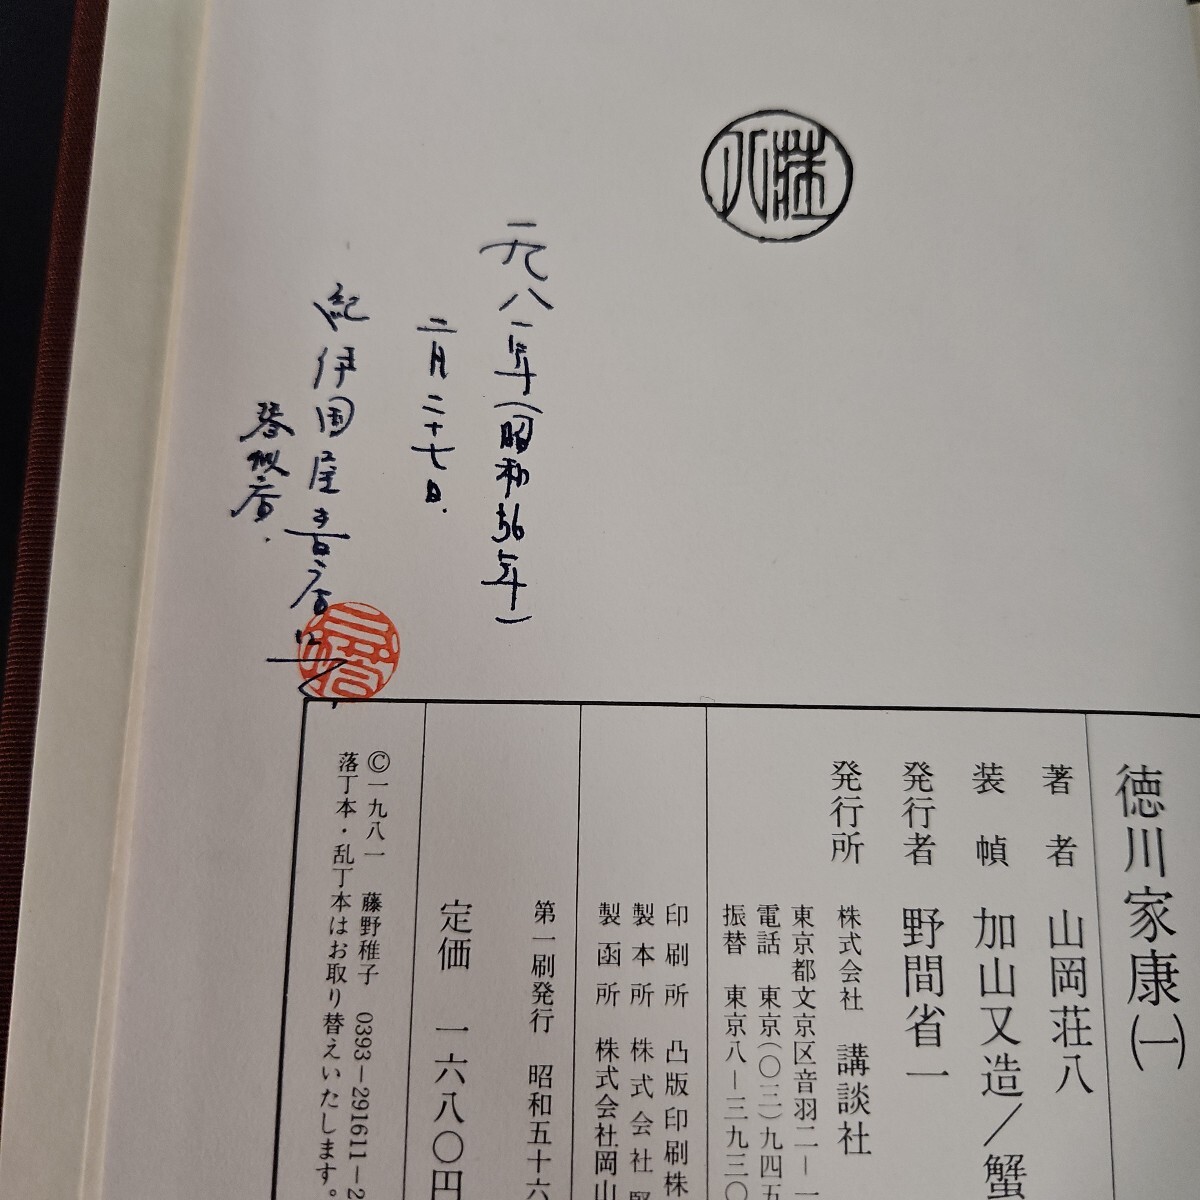 荘八
一九八一年(昭和56年)
二月二十七日.
紀伊国屋書店
徳川家康(一)
著者 山岡荘八
装幀 加山又造/蟹
発行者 野間省一
発行所 株式会社 講談社
東京都文京区音羽二-
電話 東京(〇三)九四五
振替 東京八-三九三〇
印刷所 凸版印刷株
製本所 株式会社
製函所 株式会社岡山
第一刷発行 昭和五十六
定価 一六八〇円
©一九八一 藤野稚子 0393-291611-2
落丁本・乱丁本はお取り替えいたします。